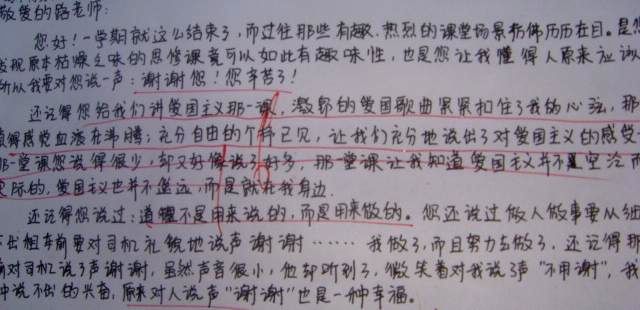 敬爱的路老师：
您好！一学期就这么结束了，而过往那些有趣、热烈的课堂场景彷佛历历在目。是您
发现原本枯燥乏味的思修课竟可以如此有趣味性，也是您让我懂得人原来应该
所以我要对您说一声：谢谢您！您辛苦了！
还记得您给我们讲爱国主义那一课，激昂的爱国歌曲紧紧扣住了我的心弦，那
真得感觉血液在沸腾；充分自由的个抒己见，让我们充分地说出了对爱国主义的感受
那一堂课您说得很少，却又好像说了好多，那一堂课让我知道爱国主义并不是空洽而
实际的，爱国主义也并不遥远，而是就在我身边。
还记得您说过：道德不是用来说的，而是用来做的。您还说过做人做事要从细
下出租车前要对司机礼貌地说声谢谢……我做了，而且努力去做了，还记得那
前对司机说了声谢谢，虽然声音很小，他却听到了，微笑着对我说了声"不用谢"，我
中说不出的兴奋，原来对人说声"谢谢"也是一种幸福。